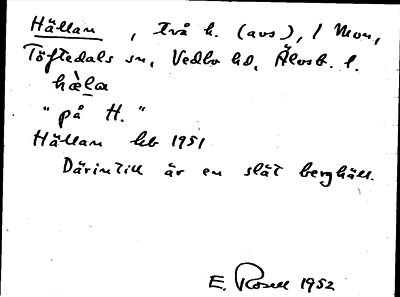 Hällan, två h. (avs), l Mon,
Töftedals sn, Vedbo hd, Älvsb. l.
hæ̀la
"på H."
Hällan kb 1951
Därintill är en slät berghäll.
E. Rosell 1952